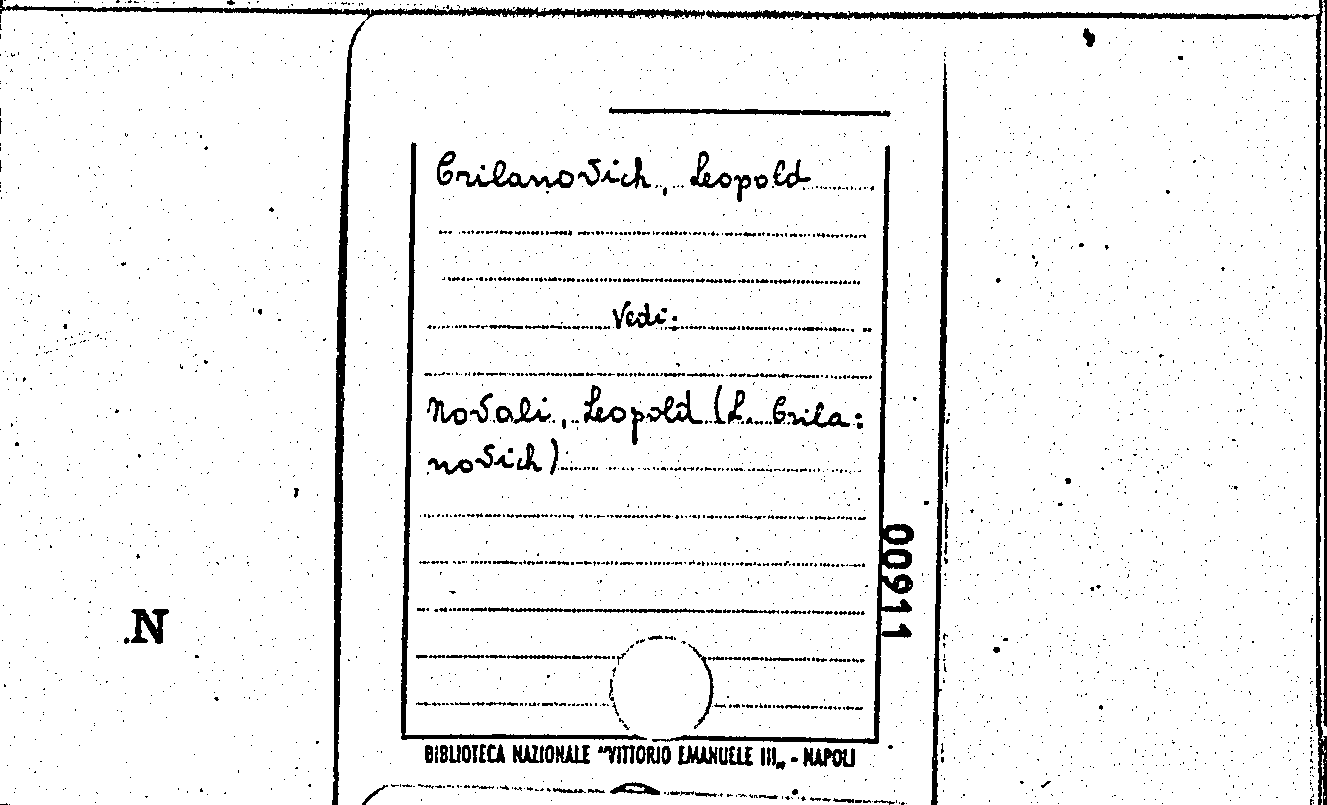 Crilanovich, Leopold
Vedi:
Novali, Leopold (L. Crila:
novich)
00911
N
BIBLIOTECA NAZIONALE "VITTORIO EMANUELE III„ - NAPOLI